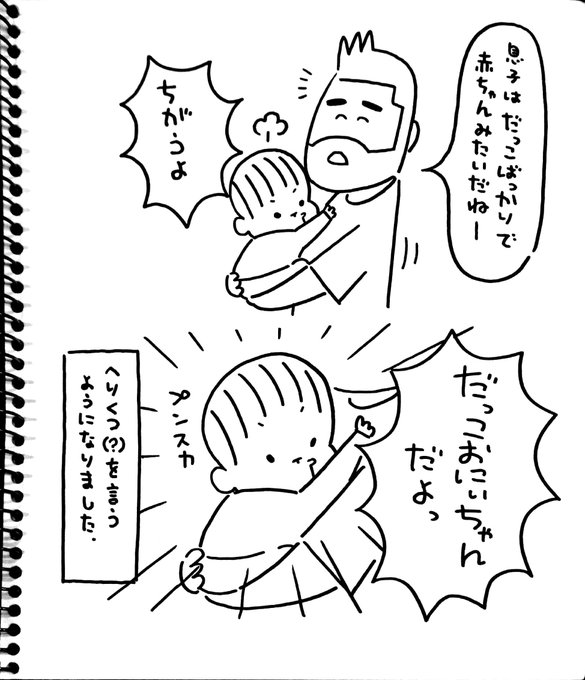 息子はだっこばっかりで
赤ちゃんみたいだねー
ちがうよ
だっこおにいちゃん
だよっ
プンスカ
へりくつ(?)を言う
ようになりました.